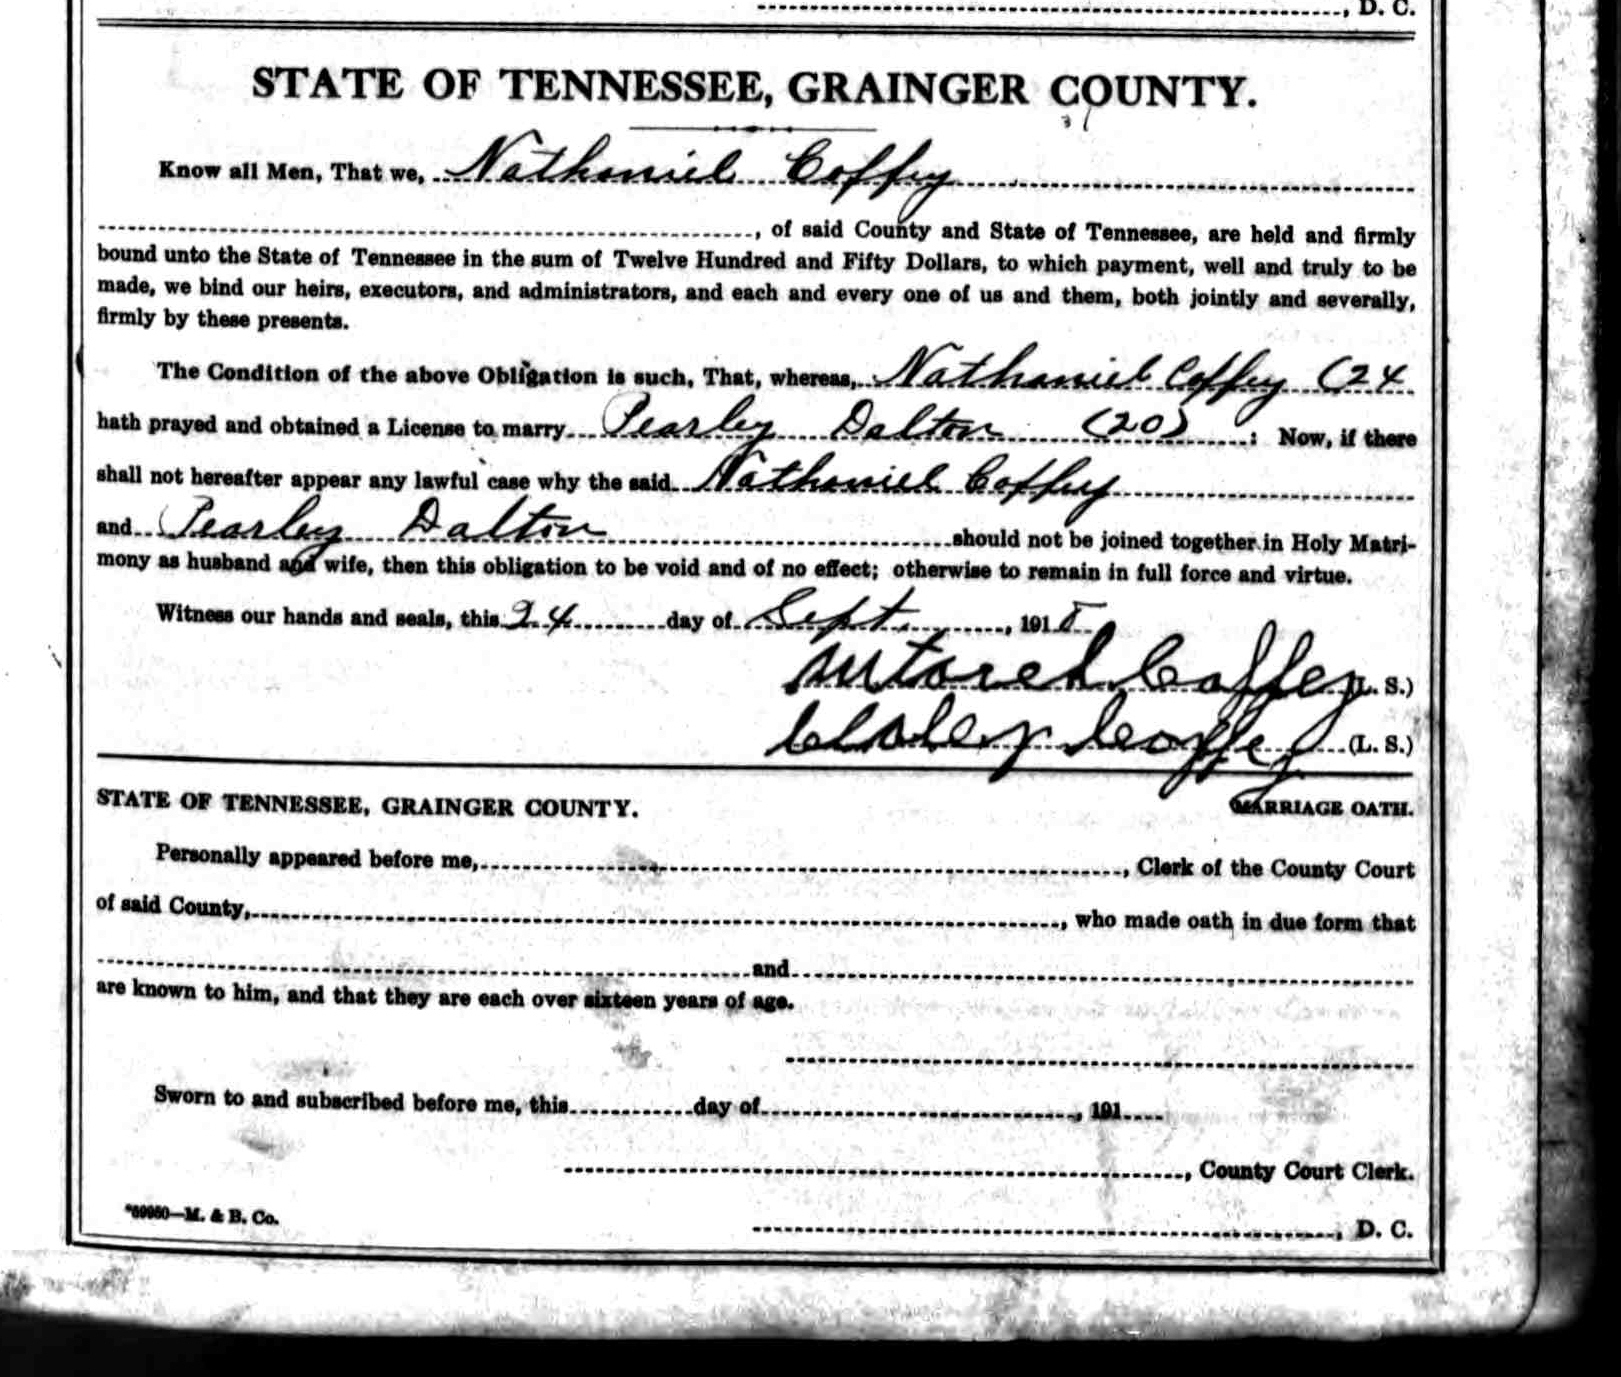 , D. C.
STATE OF TENNESSEE, GRAINGER COUNTY.
Know all Men, That we, Nathaniel Coffey
, of said County and State of Tennessee, are held and firmly
bound unto the State of Tennessee in the sum of Twelve Hundred and Fifty Dollars, to which payment, well and truly to be
made, we bind our heirs, executors, and administrators, and each and every one of us and them, both jointly and severally,
firmly by these presents.
The Condition of the above Obligation is such, That, whereas, Nathaniel Coffey (24
hath prayed and obtained a License to marry Pearley Dalton (20) : Now, if there
shall not hereafter appear any lawful case why the said Nathaniel Coffey
and Pearley Dalton should not be joined together in Holy Matri-
mony as husband and wife, then this obligation to be void and of no effect; otherwise to remain in full force and virtue.
Witness our hands and seals, this 24 day of Sept. , 191
Coffey (L. S.)
Coffey (L. S.)
STATE OF TENNESSEE, GRAINGER COUNTY. MARRIAGE OATH.
Personally appeared before me, , Clerk of the County Court
of said County, , who made oath in due form that
and
are known to him, and that they are each over sixteen years of age.
Sworn to and subscribed before me, this day of , 191
, County Court Clerk.
*69960—M. & B. Co.
, D. C.